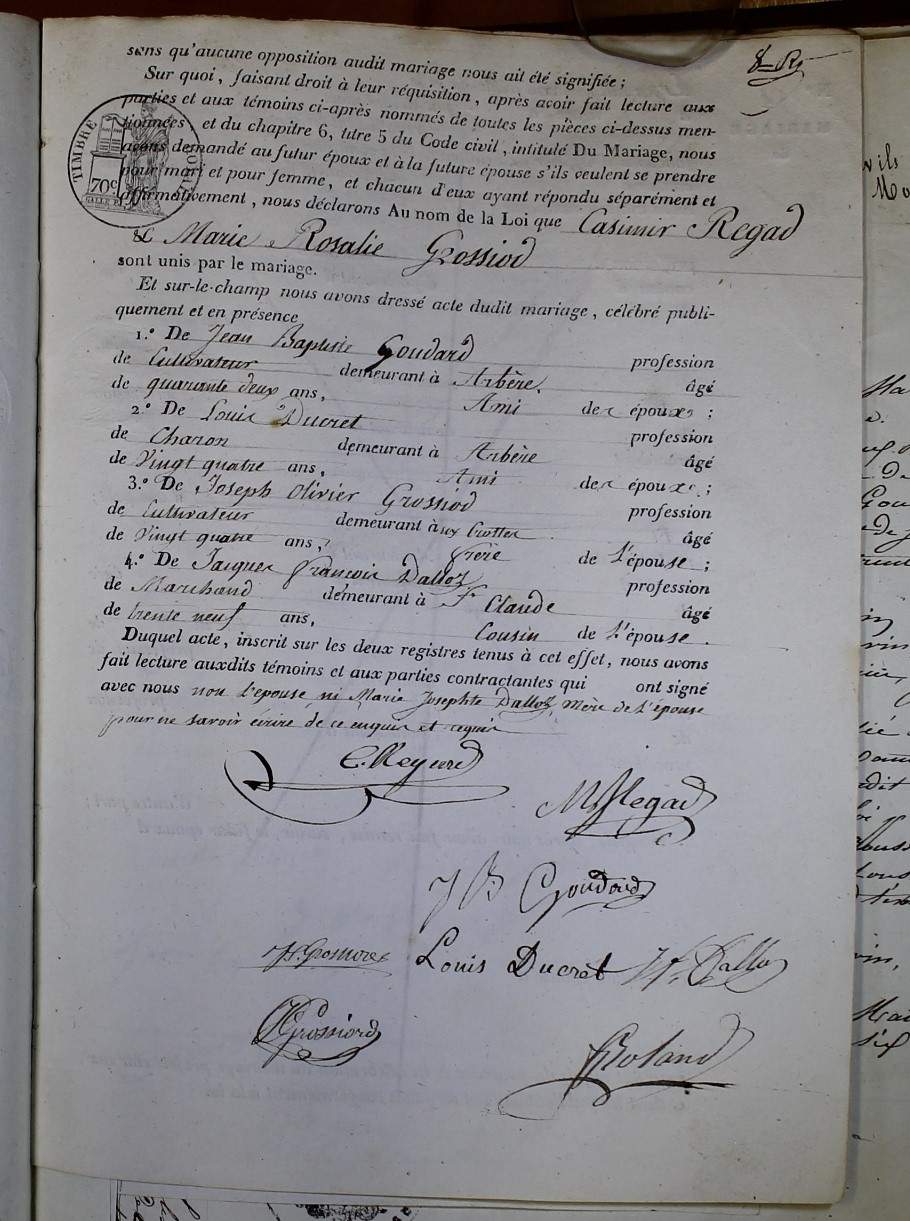 8 Rs
sans qu'aucune opposition audit mariage nous ait été signifiée ;
Sur quoi, faisant droit à leur réquisition, après avoir fait lecture aux
parties et aux témoins ci-après nommés de toutes les pièces ci-dessus men-
tionnées et du chapitre 6, titre 5 du Code civil, intitulé Du Mariage, nous
avons demandé au futur époux et à la future épouse s'ils veulent se prendre
pour mari et pour femme, et chacun d'eux ayant répondu séparément et
affirmativement, nous déclarons Au nom de la Loi que Casimir Regad
& Marie Rosalie Grossiod
sont unis par le mariage.
TIMBRE ROYAL
70c
Et sur-le-champ nous avons dressé acte dudit mariage, célébré publi-
quement et en présence
1.º De Jean Baptiste Goudard profession
de Cultivateur demeurant à Arbère. âgé
de quarante deux ans, Ami des époux ;
2.º De Louis Ducret profession
de Charon demeurant à Arbère âgé
de Vingt quatre ans, Ami des époux ;
3.º De Joseph Olivier Grossiod profession
de Cultivateur demeurant à ux Crottes âgé
de Vingt quatre ans, frère de L'épouse ;
4.º De Jacques François Dalloz profession
de Marchand demeurant à St Claude âgé
de trente neuf ans, Cousin de L'épouse.
Duquel acte, inscrit sur les deux registres tenus à cet effet, nous avons
fait lecture auxdits témoins et aux parties contractantes qui ont signé
avec nous non l'épouse, ni Marie Josephte Dalloz, Mère de L'épouse
pour ne savoir écrire de ce enquis et requis
C. Regad
M Regad
J B Goudard
Louis Ducret Jf. Dalloz
Grossiord
Roland